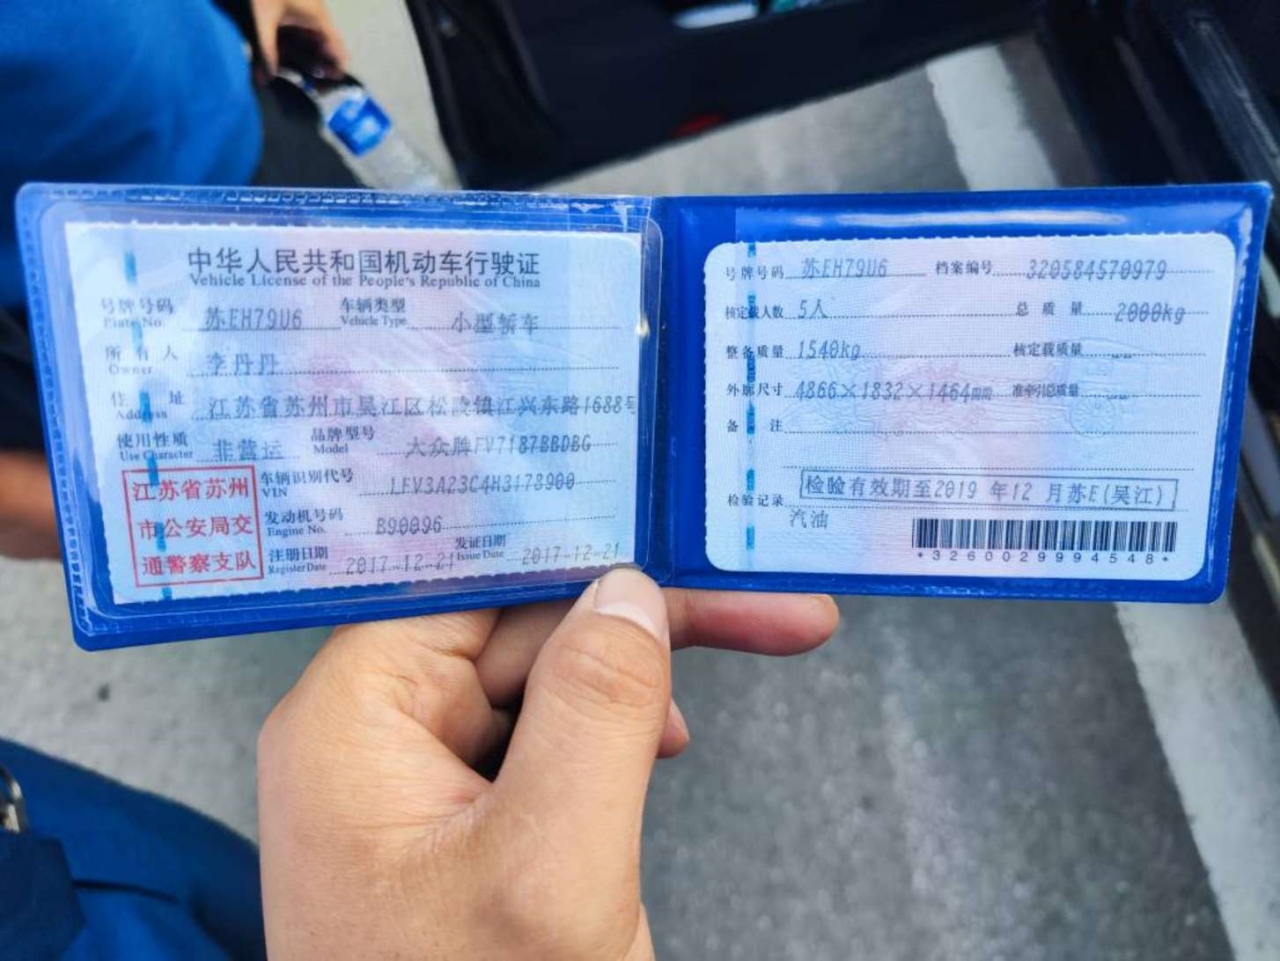 中华人民共和国机动车行驶证
Vehicle License of the People's Republic of China
号牌号码 Plate No. 苏EH79U6 车辆类型 Vehicle Type 小型轿车
所有人 Owner 李丹丹
住址 Address 江苏省苏州市吴江区松陵镇江兴东路1688号
使用性质 Use Character 非营运 品牌型号 Model 大众牌FV7187BBDBG
江苏省苏州
市公安局交
通警察支队
车辆识别代号 VIN LFV3A23C4H3178900
发动机号码 Engine No. B90096
注册日期 Register Date 2017-12-21 发证日期 Issue Date 2017-12-21
号牌号码 苏EH79U6 档案编号 320584570979
核定载人数 5人 总质量 2000kg
整备质量 1540kg 核定载质量 --
外廓尺寸 4866×1832×1464mm 准牵引总质量 --
备注
检验记录 检验有效期至2019年12月苏E(吴江)
汽油
*3260029994548*